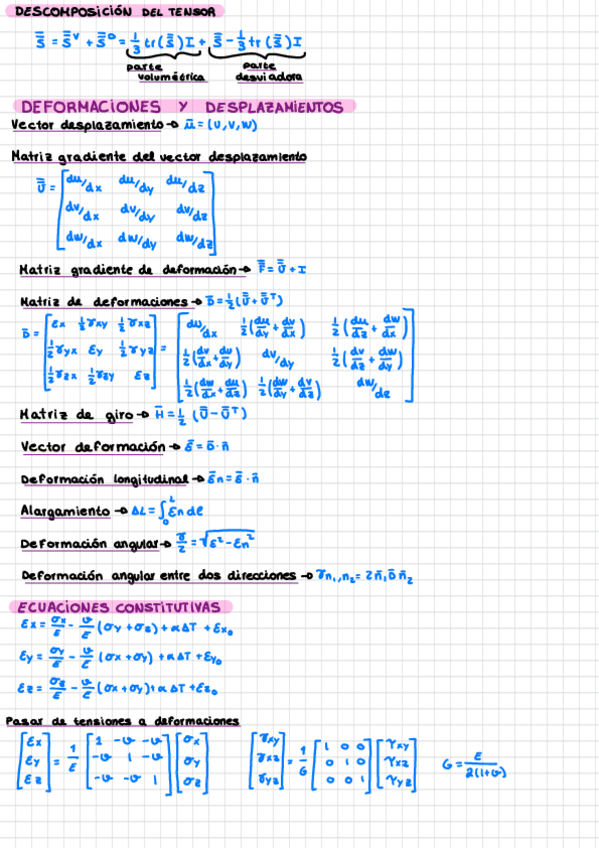 DESCOMPOSICIÓN DEL TENSOR
S̿ = S̿ᵛ + S̿ᴰ = 1/3 tr(S̿)I + S̿ - 1/3 tr(S̿)I
parte volumétrica parte desviadora
DEFORMACIONES Y DESPLAZAMIENTOS
Vector desplazamiento → ū = (U,V,W)
Matriz gradiente del vector desplazamiento
U̿ = [du/dx du/dy du/dz
dv/dx dv/dy dv/dz
dw/dx dw/dy dw/dz]
Matriz gradiente de deformación → F̿ = U̿ + I
Matriz de deformaciones → D̿ = 1/2(U̿ + U̿ᵀ)
D̿ = [εx 1/2 γxy 1/2 γxz = [du/dx 1/2(du/dy + dv/dx) 1/2(du/dz + dw/dx)
1/2 γyx εy 1/2 γyz 1/2(dv/dx + du/dy) dv/dy 1/2(dv/dz + dw/dy)
1/2 γzx 1/2 γzy εz] 1/2(dw/dx + du/dz) 1/2(dw/dy + dv/dz) dw/dz]
Matriz de giro → H̿ = 1/2 (U̿ - U̿ᵀ)
Vector deformación → ε̄ = D̿ · n̄
Deformación longitudinal → εn = ε̄ · n̄
Alargamiento → ΔL = ∫₀ᴸ εn dl
Deformación angular → γ/2 = √(ε² - εn²)
Deformación angular entre dos direcciones → γn₁,n₂ = 2n̄₁ D̿ n̄₂
ECUACIONES CONSTITUTIVAS
εx = σx/E - υ/E (σy + σz) + α ΔT + εx₀
εy = σy/E - υ/E (σx + σy) + α ΔT + εy₀
εz = σz/E - υ/E (σx + σy) + α ΔT + εz₀
Pasar de tensiones a deformaciones
[εx εy εz] = 1/E [1 -υ -υ; -υ 1 -υ; -υ -υ 1] [σx σy σz] [γxy γxz γyz] = 1/G [1 0 0; 0 1 0; 0 0 1] [τxy τxz τyz] G = E/2(1+υ)